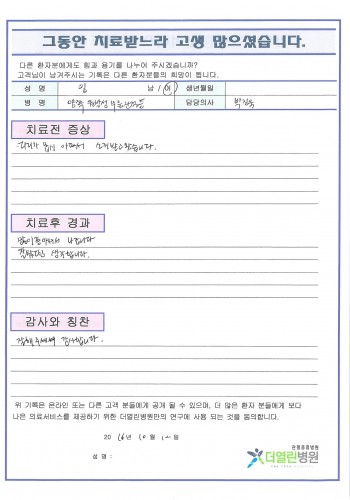 그동안 치료받느라 고생 많으셨습니다.
다른 환자분에게도 힘과 용기를 나누어 주시겠습니까?
고객님이 남겨주시는 기록은 다른 환자분들의 희망이 됩니다.
성 명 임 남 / 여 생년월일
병 명 양측 담당의사 박
치료전 증상
허리가 아파서 왔습니다.
치료후 경과
생각합니다.
감사와 칭찬
감사합니다.
위 기록은 온라인 또는 다른 고객 분들에게 공개 될 수 있으며, 더 많은 환자 분들에게 보다
나은 의료서비스를 제공하기 위한 더열린병원만의 연구에 사용 되는 것을 동의합니다.
2016년 10월 12일
성 명 :
관절종합병원
더열린병원